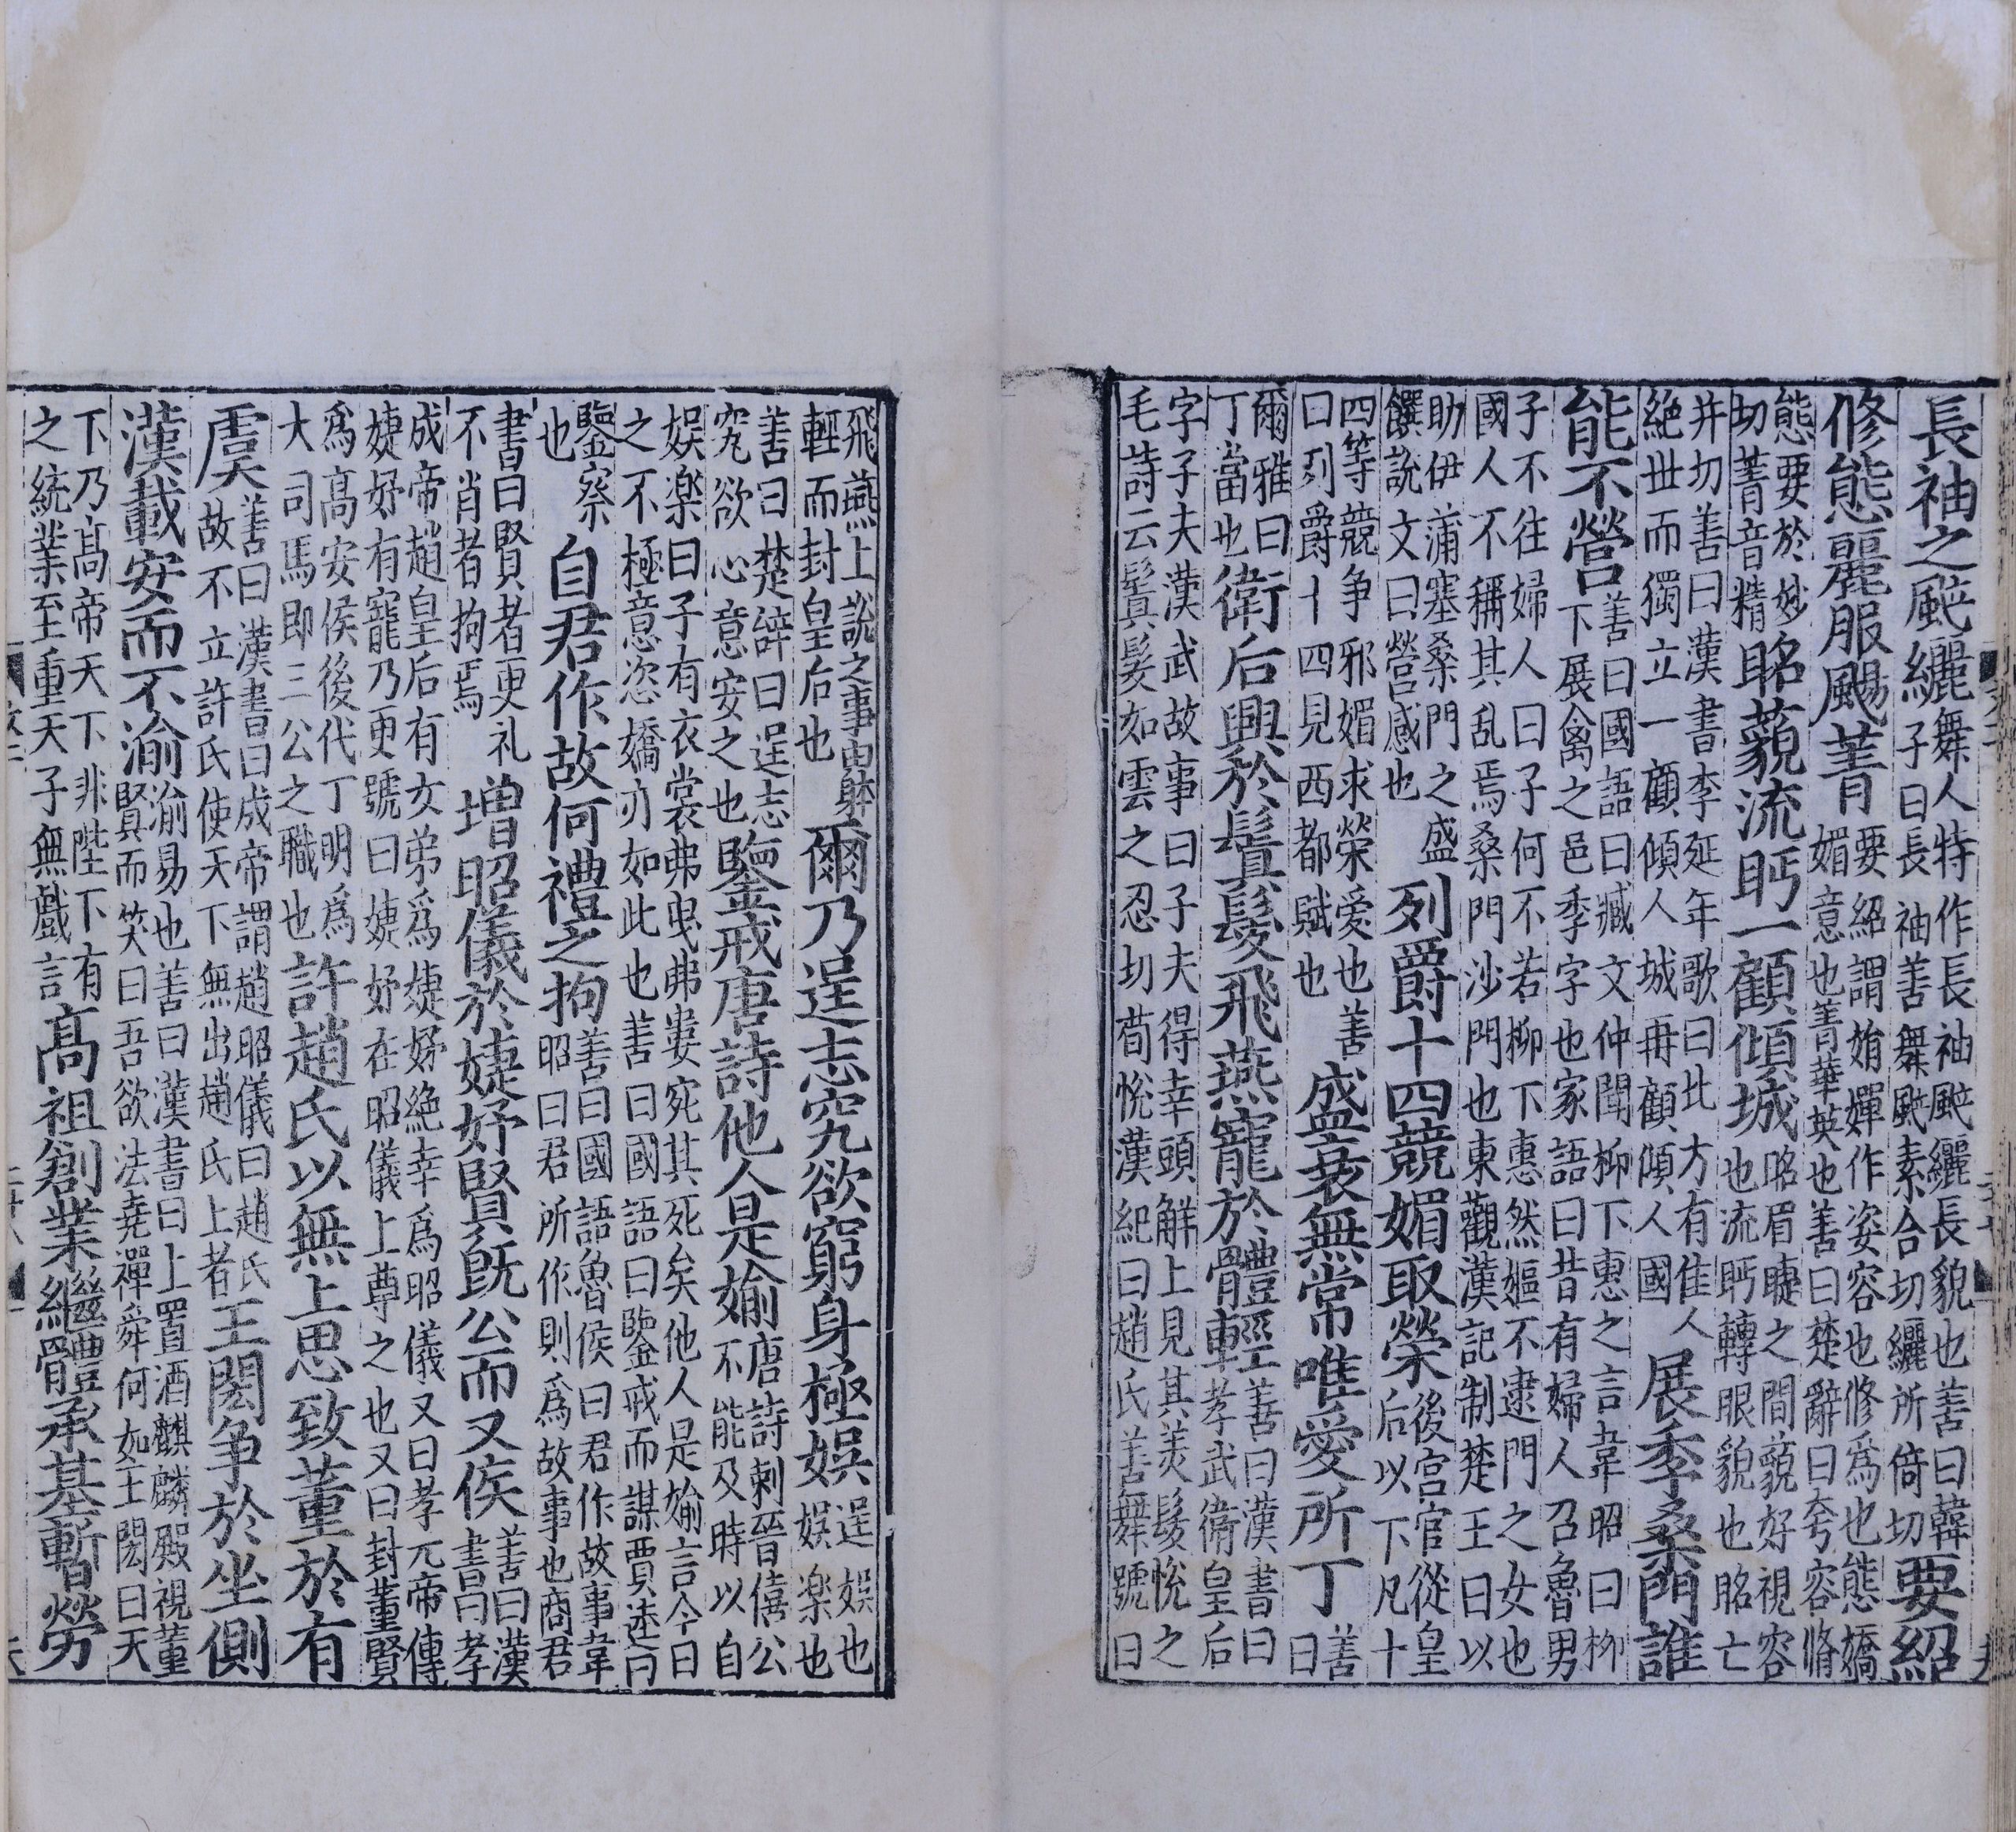 長袖之颰纚舞人特作長袖颰纚長貌也善曰韓子曰長袖善舞颰素合切纚所倚切要紹
修態麗服颺菁要紹謂娋嬋作姿容也修爲也態嬌媚意也菁華英也善曰楚辭曰夸容脩
態要於妙切菁音精眳藐流眄一顧傾城眳眉睫之間藐好視容也流眄轉眼貌也眳亡
井切善曰漢書李延年歌曰北方有佳人絶世而獨立一顧傾人城再顧傾人國展季桑門誰
能不營善曰國語曰臧文仲聞柳下惠之言韋昭曰柳下展禽之邑季字也家語曰昔有婦人召魯男
子不往婦人曰子何不若柳下惠然嫗不逮門之女也國人不稱其乱焉桑門沙門也東觀漢記制楚王曰以
助伊蒲塞桑門之盛饌說文曰營惑也列爵十四競媚取榮後宮官從皇后以下凡十
四等競争邪媚求榮愛也善曰列爵十四見西都賦也盛衰無常唯愛所丁善曰
爾雅曰丁當也衛后興於鬒髮飛燕寵於體輕善曰漢書曰孝武衛皇后
字子夫漢武故事曰子夫得幸頭解上見其美髮悅之毛詩云鬒髮如雲之忍切荀悅漢紀曰趙氏善舞號曰
飛燕上說之事由躰輕而封皇后也爾乃逞志究欲窮身極娱逞娱也娱楽也
善曰楚辞曰逞志究欲心意安之也鑒戒唐詩他人是媮唐詩刺晉僖公不能及時以自
娱楽曰子有衣裳弗曳弗婁宛其死矣他人是媮言今日之不極意恣嬌亦如此也善曰國語曰鑒戒而謀賈逵曰
鑒察也自君作故何禮之拘善曰國語魯侯曰君作故事韋昭曰君所作則爲故事也商君
書曰賢者更礼不肖者拘焉增昭儀於婕妤賢既公而又侯善曰漢書曰孝
成帝趙皇后有女弟爲婕妤絶幸爲昭儀又曰孝元帝傅婕妤有寵乃更號曰婕妤在昭儀上尊之也又曰封董賢
爲高安侯後代丁明爲大司馬即三公之職也許趙氏以無上思致董於有
虞善曰漢書曰成帝謂趙昭儀曰趙氏故不立許氏使天下無出趙氏上者王閎争於坐側
漢載安而不渝渝易也善曰漢書曰上置酒麒麟殿視董賢而笑曰吾欲法堯禪舜何如王閎曰天
下乃高帝天下非陛下有之統業至重天子無戲言高祖創業繼體承基暫勞